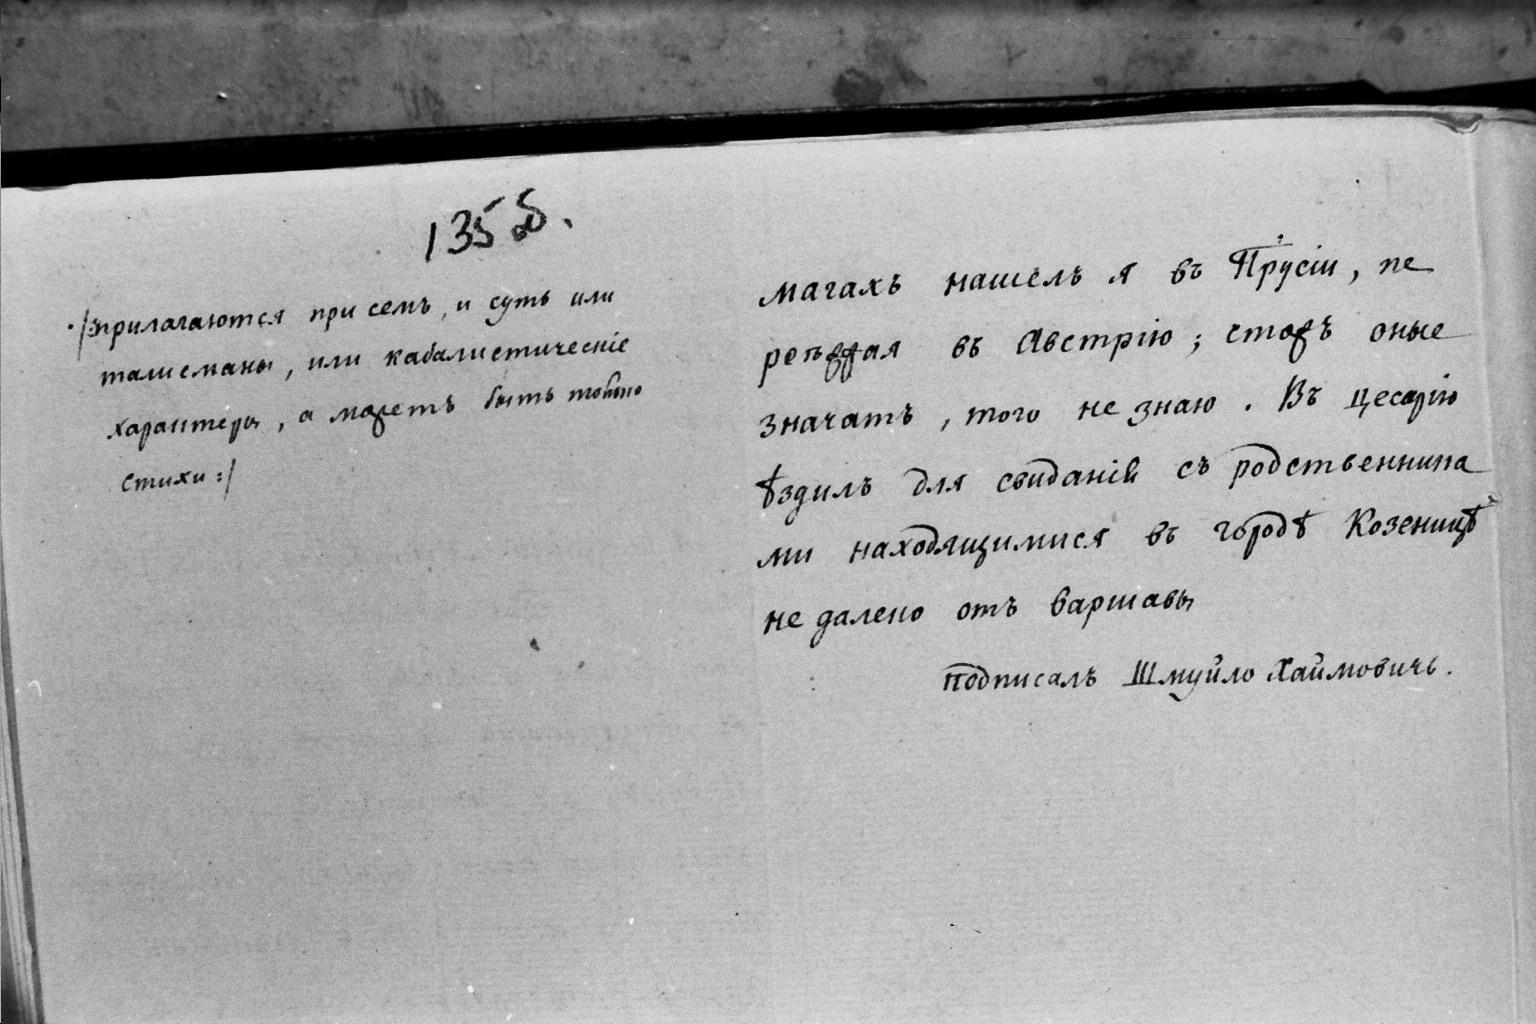 135 об.
./:прилагаются при семъ, и суть или
талисманы, или кабалистическіе
характеры, а можетъ быть токмо
стихи:/
магахъ нашелъ я въ Прусіи, пе
реѣзжая въ Австрію; чтожъ оные
значатъ, того не знаю. Въ цесарію
ѣздилъ для свиданій съ родственника
ми находящимися въ городѣ Козеницѣ
не далеко отъ варшавы
подписалъ Шмуйло Хаймовичь.